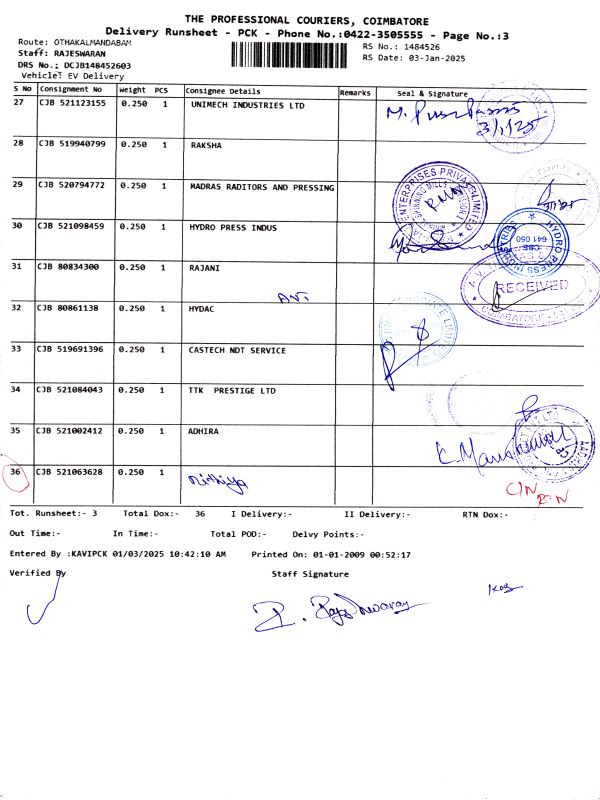 THE PROFESSIONAL COURIERS, COIMBATORE
Delivery Runsheet - PCK - Phone No.:0422-3505555 - Page No.:3
Route: OTHAKALMANDABAM
RS No.: 1484526
Staff: RAJESWARAN
RS Date: 03-Jan-2025
DRS No.: DCJB148452603
Vehicle: EV Delivery
S No Consignment No Weight PCS Consignee Details Remarks Seal & Signature
27 CJB 521123155 0.250 1 UNIMECH INDUSTRIES LTD
3/1/25
28 CJB 519940799 0.250 1 RAKSHA
29 CJB 520794772 0.250 1 MADRAS RADITORS AND PRESSING
ENTERPRISES PRIVATE LIMITED
30 CJB 521098459 0.250 1 HYDRO PRESS INDUS
HYDRO PRESS INDUSTRIES
CBE
641 050
31 CJB 80834300 0.250 1 RAJANI
RECEIVED
32 CJB 80861138 0.250 1 HYDAC
33 CJB 519691396 0.250 1 CASTECH NDT SERVICE
34 CJB 521084043 0.250 1 TTK PRESTIGE LTD
35 CJB 521002412 0.250 1 ADHIRA
36 CJB 521063628 0.250 1 Nithiya
Tot. Runsheet:- 3 Total Dox:- 36 I Delivery:- II Delivery:- RTN Dox:-
Out Time:- In Time:- Total POD:- Delvy Points:-
Entered By :KAVIPCK 01/03/2025 10:42:10 AM Printed On: 01-01-2009 00:52:17
Verified By Staff Signature